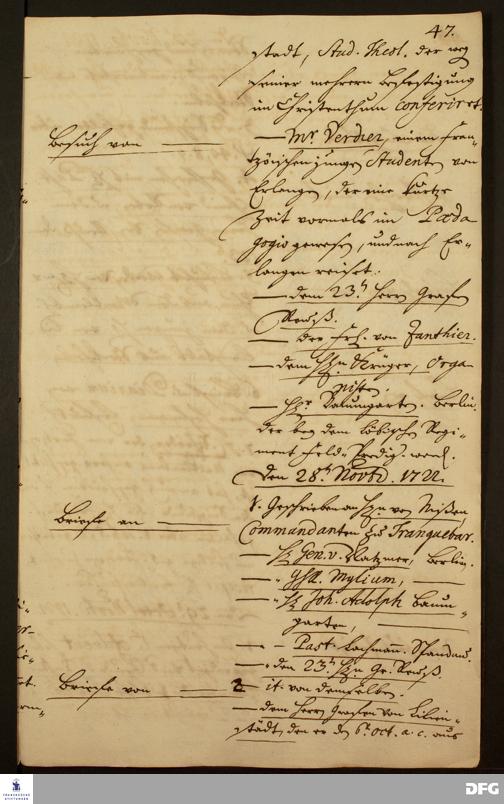 47.
stadt, Stud. Theol. der weg
seiner mehrern Befestigung
im Christenthum conferiret.
Besuch von — Mr. Verdier, einem Fran-
tzösischen jungen Studenten von
Erlangen, der eine kurtze
Zeit vormals im Pæda
gogio gewesen, und nach Er-
langen reiset.
— dem 23t Herrn Grafen
Reuß.
— der Frl. von Zanthier.
— dem Hn Krüger, Orga
nisten.
— Hr Baumgarten. Berlin.
der bey dem Löbischen Regi-
ment Feld-Predig. werd.
Den 28t Novbr. 1722.
Briefe an — 1. Geschrieben an Hn von Nissen,
Commandanten zu Tranquebar.
— H Gen. v. Natzmer, Berlin.
— Mylium, —
— H Joh. Adolph Baum-
garten, —
— Past. Lachmann. Spandau.
— den 23t Hn Gr. Reuß.
Briefe von — 2 it. von demselben.
— dem Herrn Grafen von Lilien-
städt, den er d 6t Oct. a. c. aus
FRANCKESCHE STIFTUNGEN
DFG